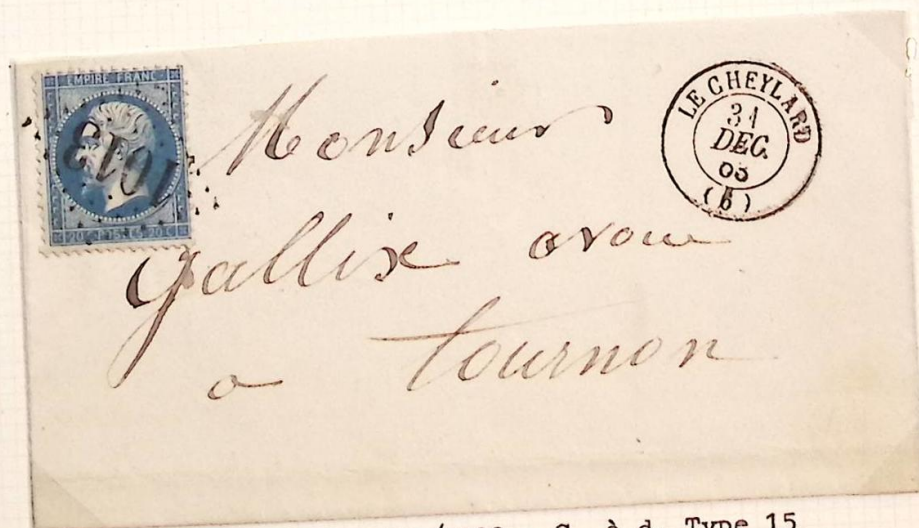 EMPIRE FRANC
1013
20 C POSTES 20 C
LE CHEYLARD
31
DEC.
65
(6)
Monsieur
Gallix avoué
a tournon
C. à d. Type 15